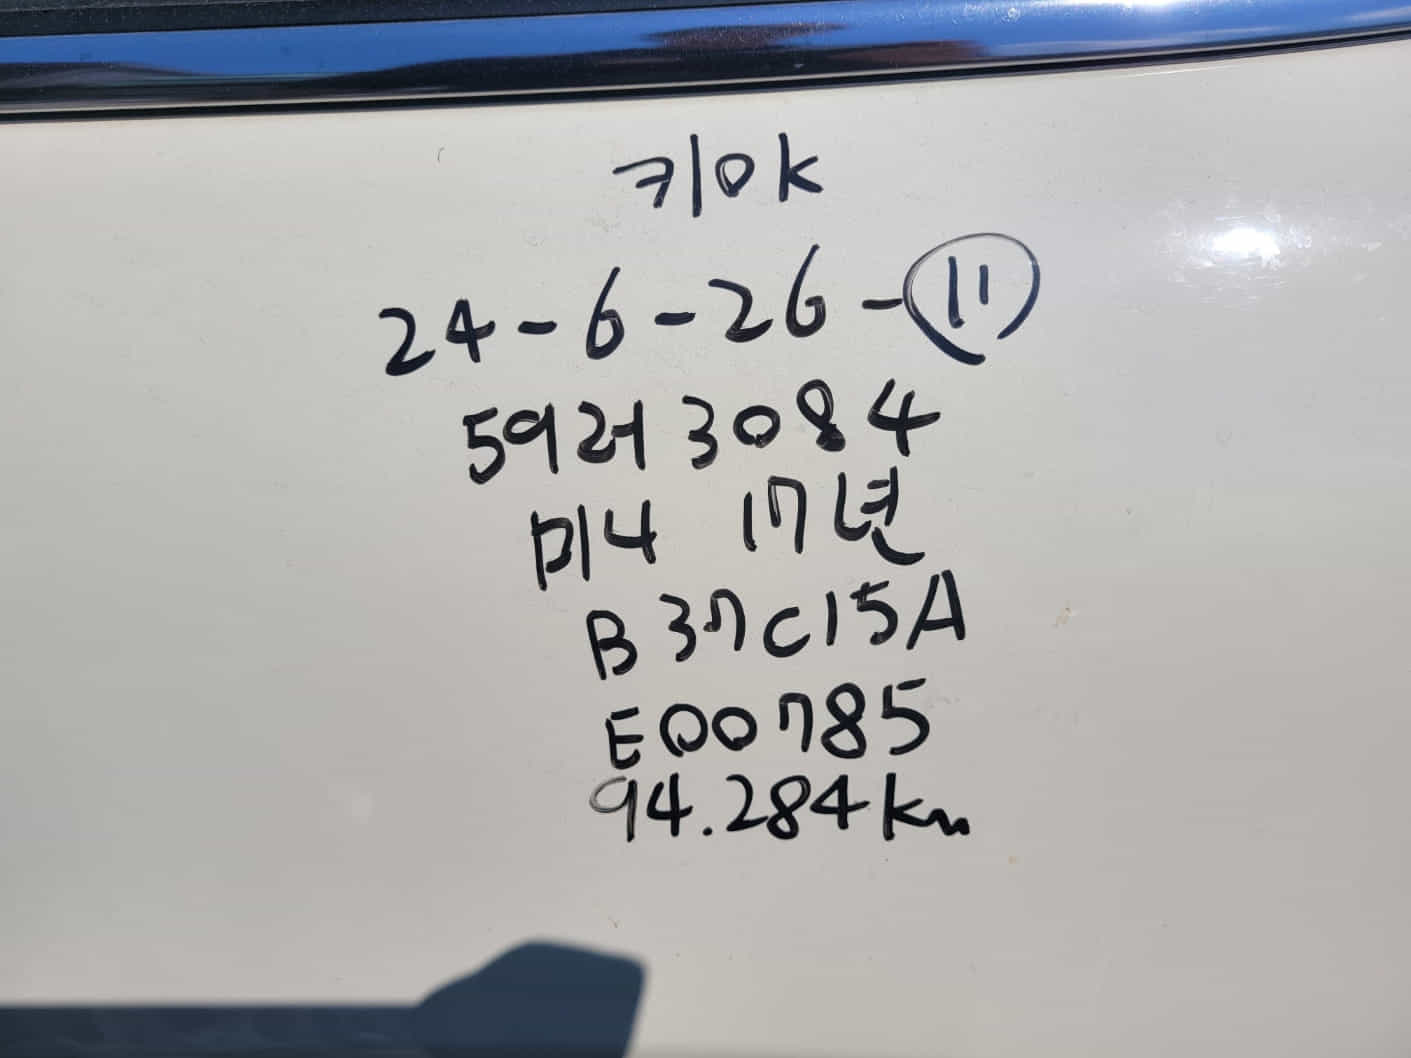 키OK
24-6-26-⑪
59거3084
미니 17년
B37C15A
E00785
94.284km